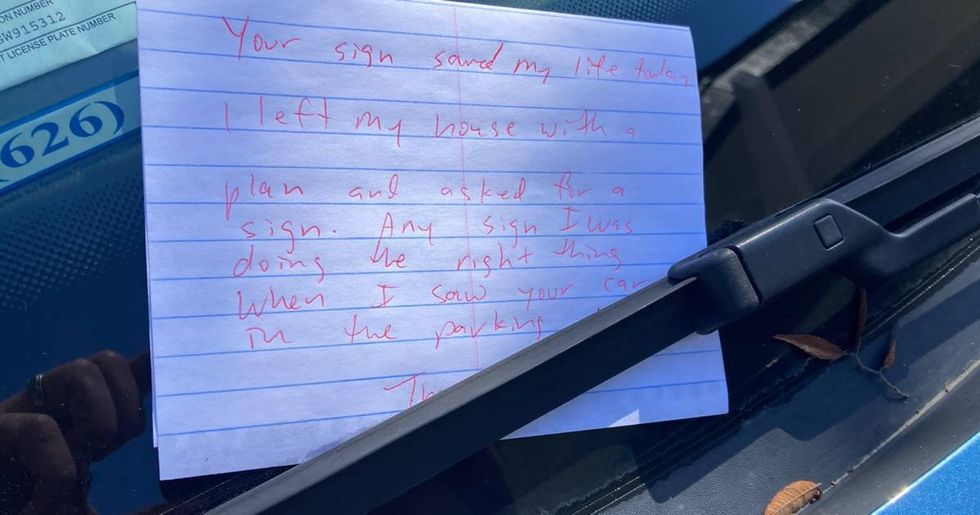 ON NUMBER
SW915312
T LICENSE PLATE NUMBER
(626)
Your sign saved my life today
I left my house with a
plan and asked for a
sign. Any sign I was
doing the right thing
When I saw your car
in the parking
Th